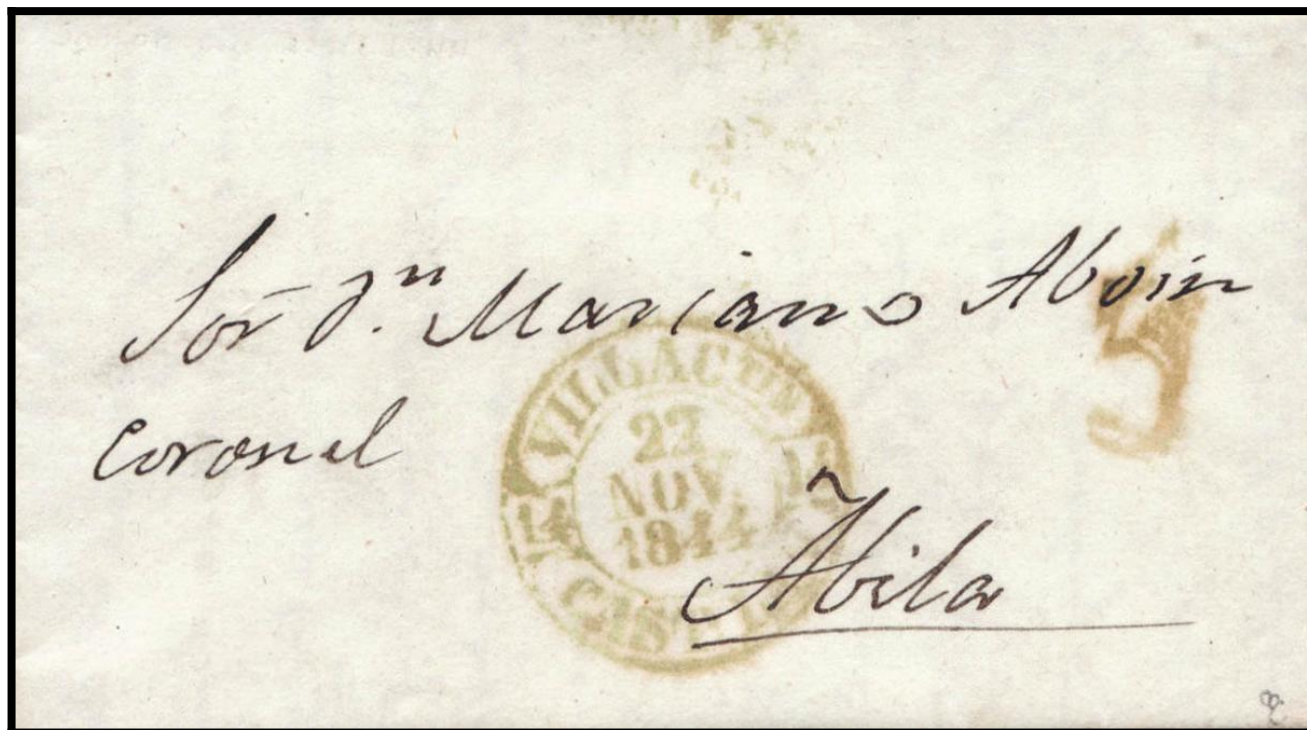 Sor. Dn. Mariano Aboin
5
coronel
VILLACTIN
22
NOV.
1844
14
14
CAST
Abila